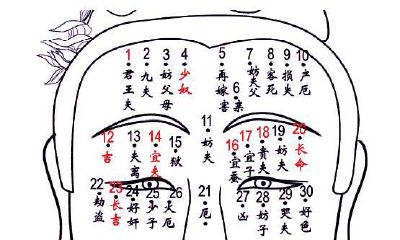 1 君王夫
2 九夫
3 妨父母
4 少奴
5 再嫁害
6 亲
7 妨夫父
8 客死
9 损夫
10 户厄
11 妨夫
12 吉
13 夫离
14 宜夫
15 狱
16 宜蚕
17 宜子
18 贵夫
19 妨夫
20 长命
21 厄
22 劫盗
23 长吉
24 好奸
25 少子
26 火厄
27 凶
28 妨子
29 哭夫
30 好色